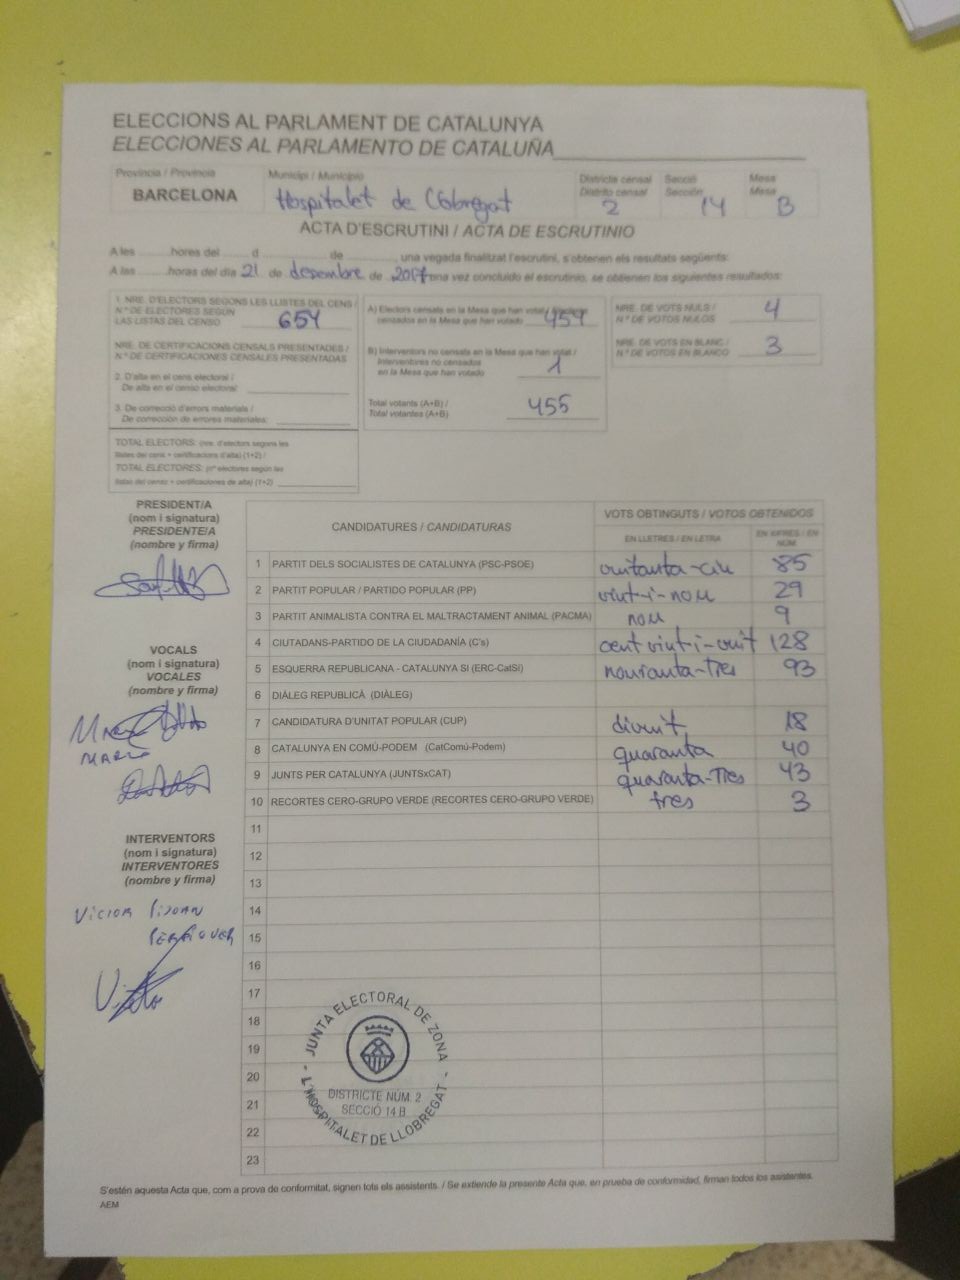 ELECCIONS AL PARLAMENT DE CATALUNYA
ELECCIONES AL PARLAMENTO DE CATALUÑA
Província / Provincia
BARCELONA
Municipi / Municipio
Hospitalet de Llobregat
Districte censal
Distrito censal
2
Secció
Sección
14
Mesa
Mesa
B
ACTA D'ESCRUTINI / ACTA DE ESCRUTINIO
A les hores del d de , una vegada finalitzat l'escrutini, s'obtenen els resultats següents:
A las horas del día 21 de desembre de 2017 una vez concluido el escrutinio, se obtienen los siguientes resultados:
1. NRE. D'ELECTORS SEGONS LES LLISTES DEL CENS /
N.º DE ELECTORES SEGÚN
LAS LISTAS DEL CENSO 654
NRE. DE CERTIFICACIONS CENSALS PRESENTADES /
N.º DE CERTIFICACIONES CENSALES PRESENTADAS
2. D'alta en el cens electoral /
De alta en el censo electoral:
3. De correcció d'errors materials /
De corrección de errores materiales:
TOTAL ELECTORS: (nre. d'electors segons les
llistes del cens + certificacions d'alta) (1+2) /
TOTAL ELECTORES: (nº electores según las
listas del censo + certificaciones de alta) (1+2)
A) Electors censats en la Mesa que han votat /
censados en la Mesa que han votado 454
B) Interventors no censats en la Mesa que han votat /
Interventores no censados
en la Mesa que han votado 1
Total votants (A+B) /
Total votantes (A+B) 455
NRE. DE VOTS NULS /
N.º DE VOTOS NULOS 4
NRE. DE VOTS EN BLANC /
N.º DE VOTOS EN BLANCO 3
PRESIDENT/A
(nom i signatura)
PRESIDENTE/A
(nombre y firma)
VOCALS
(nom i signatura)
VOCALES
(nombre y firma)
MARIA
INTERVENTORS
(nom i signatura)
INTERVENTORES
(nombre y firma)
VICTOR
CANDIDATURES / CANDIDATURAS
VOTS OBTINGUTS / VOTOS OBTENIDOS
EN LLETRES / EN LETRA
EN XIFRES / EN NÚM.
1 PARTIT DELS SOCIALISTES DE CATALUNYA (PSC-PSOE) vuitanta-cinc 85
2 PARTIT POPULAR / PARTIDO POPULAR (PP) vint-i-nou 29
3 PARTIT ANIMALISTA CONTRA EL MALTRACTAMENT ANIMAL (PACMA) nou 9
4 CIUTADANS-PARTIDO DE LA CIUDADANÍA (C's) cent vint-i-vuit 128
5 ESQUERRA REPUBLICANA - CATALUNYA SÍ (ERC-CatSí) nouranta-tres 93
6 DIÀLEG REPUBLICÀ (DIÀLEG)
7 CANDIDATURA D'UNITAT POPULAR (CUP) divuit 18
8 CATALUNYA EN COMÚ-PODEM (CatComú-Podem) quaranta 40
9 JUNTS PER CATALUNYA (JUNTSxCAT) quaranta-tres 43
10 RECORTES CERO-GRUPO VERDE (RECORTES CERO-GRUPO VERDE) tres 3
11
12
13
14
15
16
17
18
19
20
21
22
23
JUNTA ELECTORAL DE ZONA
DISTRICTE NÚM. 2
SECCIÓ 14 B
L'HOSPITALET DE LLOBREGAT
S'estén aquesta Acta que, com a prova de conformitat, signen tots els assistents. / Se extiende la presente Acta que, en prueba de conformidad, firman todos los asistentes.
AEM